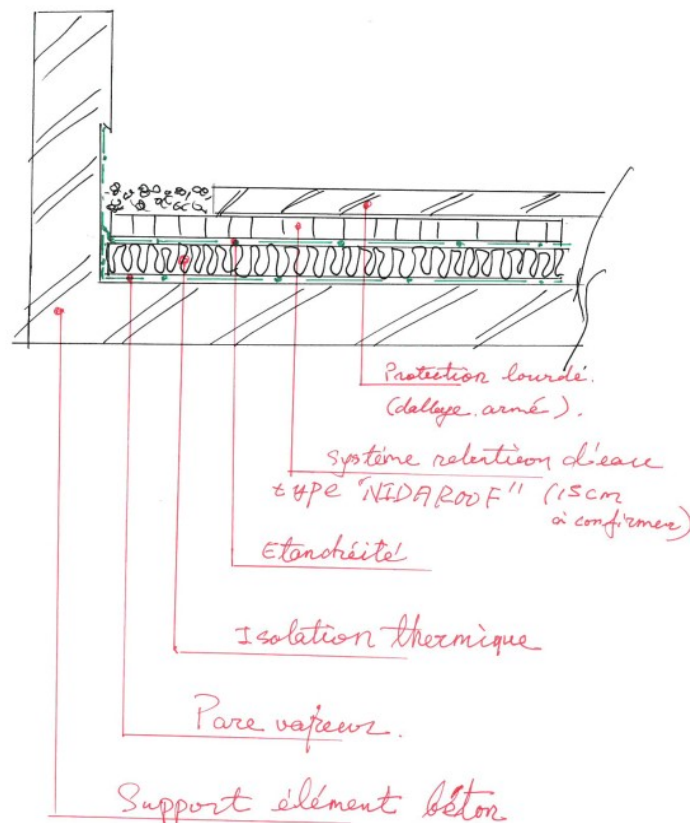 Protection lourdé.
(dallage armé).
système retention d'eau
type "NIDAROOF" (15cm
à confirmer)
Etanchéité
Isolation thermique
Pare vapeur.
Support élément béton